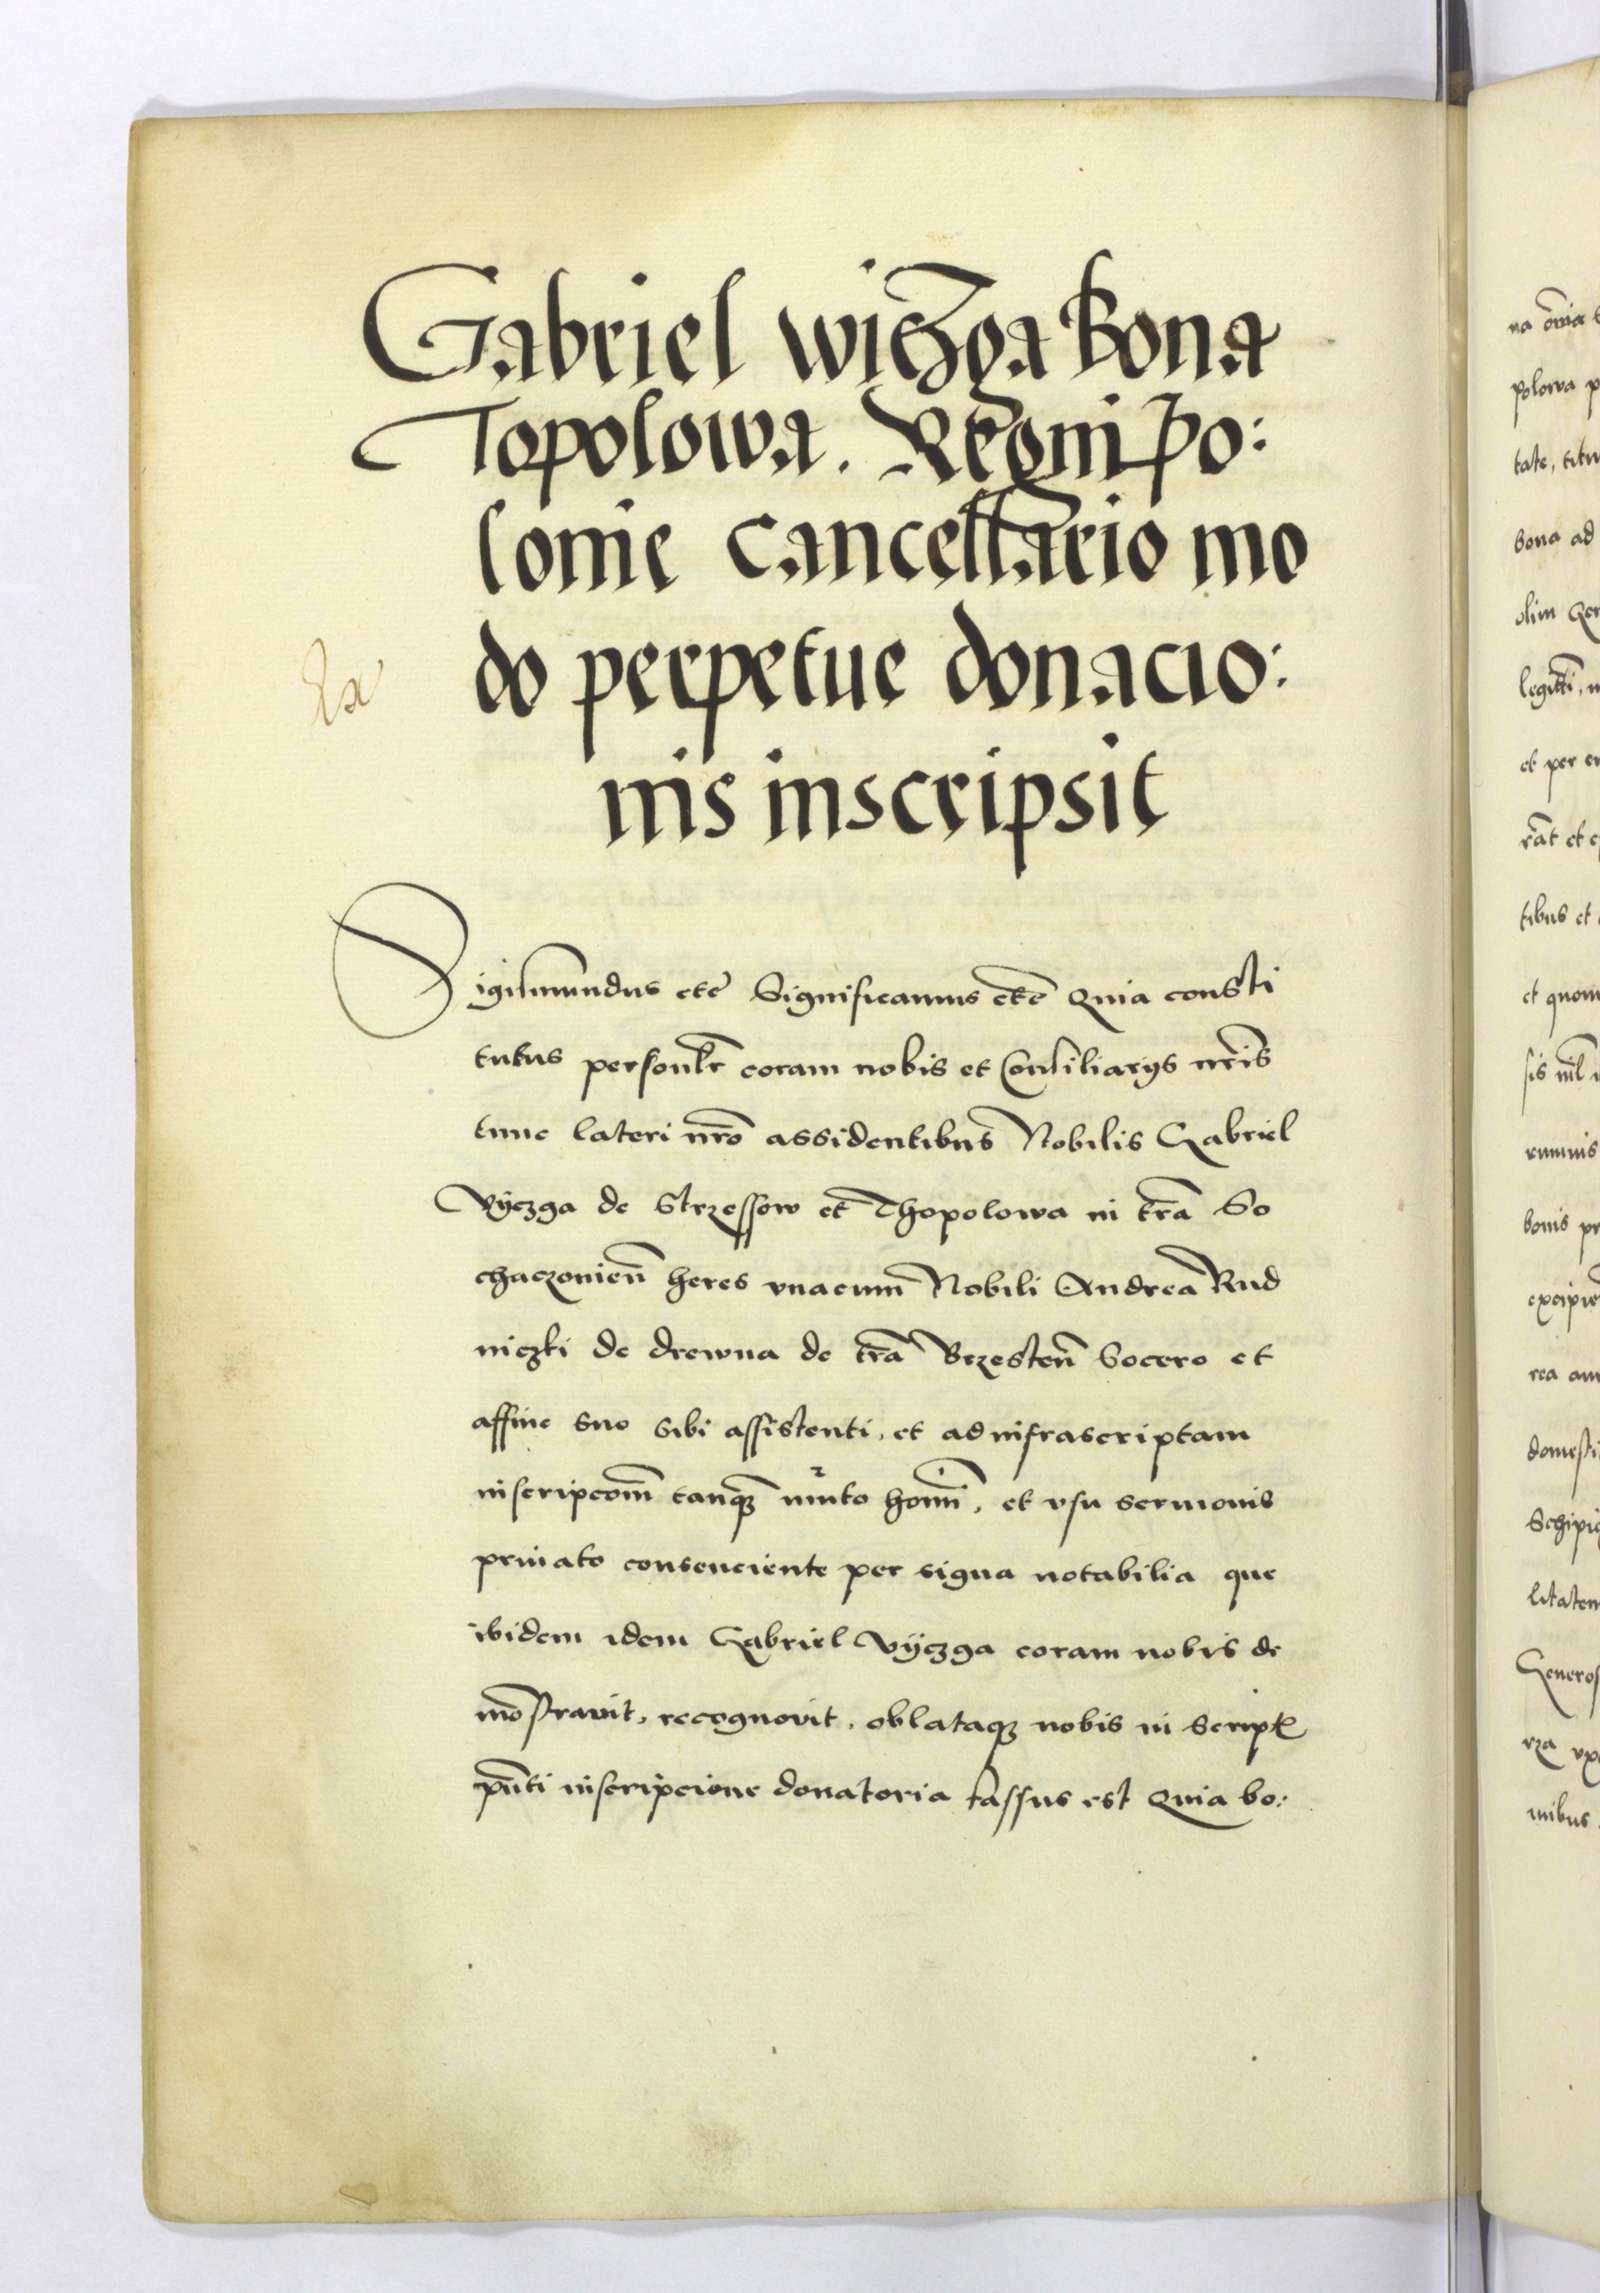 Gabriel wiczga Bona
Topolowa. Regni Po:
lonie Cancellario mo
do perpetue donacio:
nis inscripsit
Ex
Sigismundus etc̄ Significamus etc̄ Quia consti
tutus personlr̄ coram nobis et Consiliarys nr̄is
tunc lateri nr̄o assidentibus Nobilis Gabriel
Vyczga de Strzessow et Thopolowa in tr̄a So
chaczovien̄ heres vnacum Nobili Andrea Rud
niczki de drewna de tr̄a Brzesten̄ Socero et
affine suo sibi assistenti, et ad infrascriptam
inscripcōm tanq̄ muto homi, et vsu sermonis
priuato consenciente per signa notabilia que
ibidem idem Gabriel Vyczga coram nobis de
mōstravit, recognovit, oblataq nobis in script
pn̄ti inscripcione donatoria fassus est Quia bo:
na om̄ia
polowa p
tate, titu
bona ad
olim Gen
et per
tibus et
et quom
bonis pr
rea
domesti
litatem
Generos
nibus